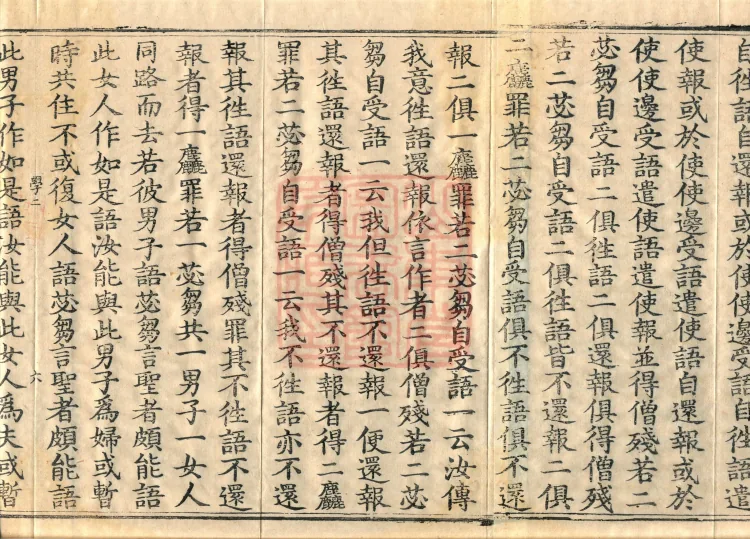 自往語自還報或於使使邊受語自往語遣
使報或於使使邊受語遣使語自還報或於
使使邊受語遣使語遣使報並得僧殘若二
苾芻自受語二俱往語二俱還報俱得僧殘
若二苾芻自受語二俱往語皆不還報二俱
二麤罪若二苾芻自受語俱不往語俱不還
報二俱一麤罪若二苾芻自受語一云汝傳
我意往語還報依言作者二俱僧殘若二苾
芻自受語一云我但往語不還報一便還報
其往語還報者得僧殘其不還報者得二麤
罪若二苾芻自受語一云我不往語亦不還
報其往語還報者得僧殘罪其不往語不還
報者得一麤罪若一苾芻共一男子一女人
同路而去若彼男子語苾芻言聖者頗能語
此女人作如是語汝能與此男子爲婦或暫
時共住不或復女人語苾芻言聖者頗能語
學二 六
此男子作如是語汝能與此女人爲夫或暫